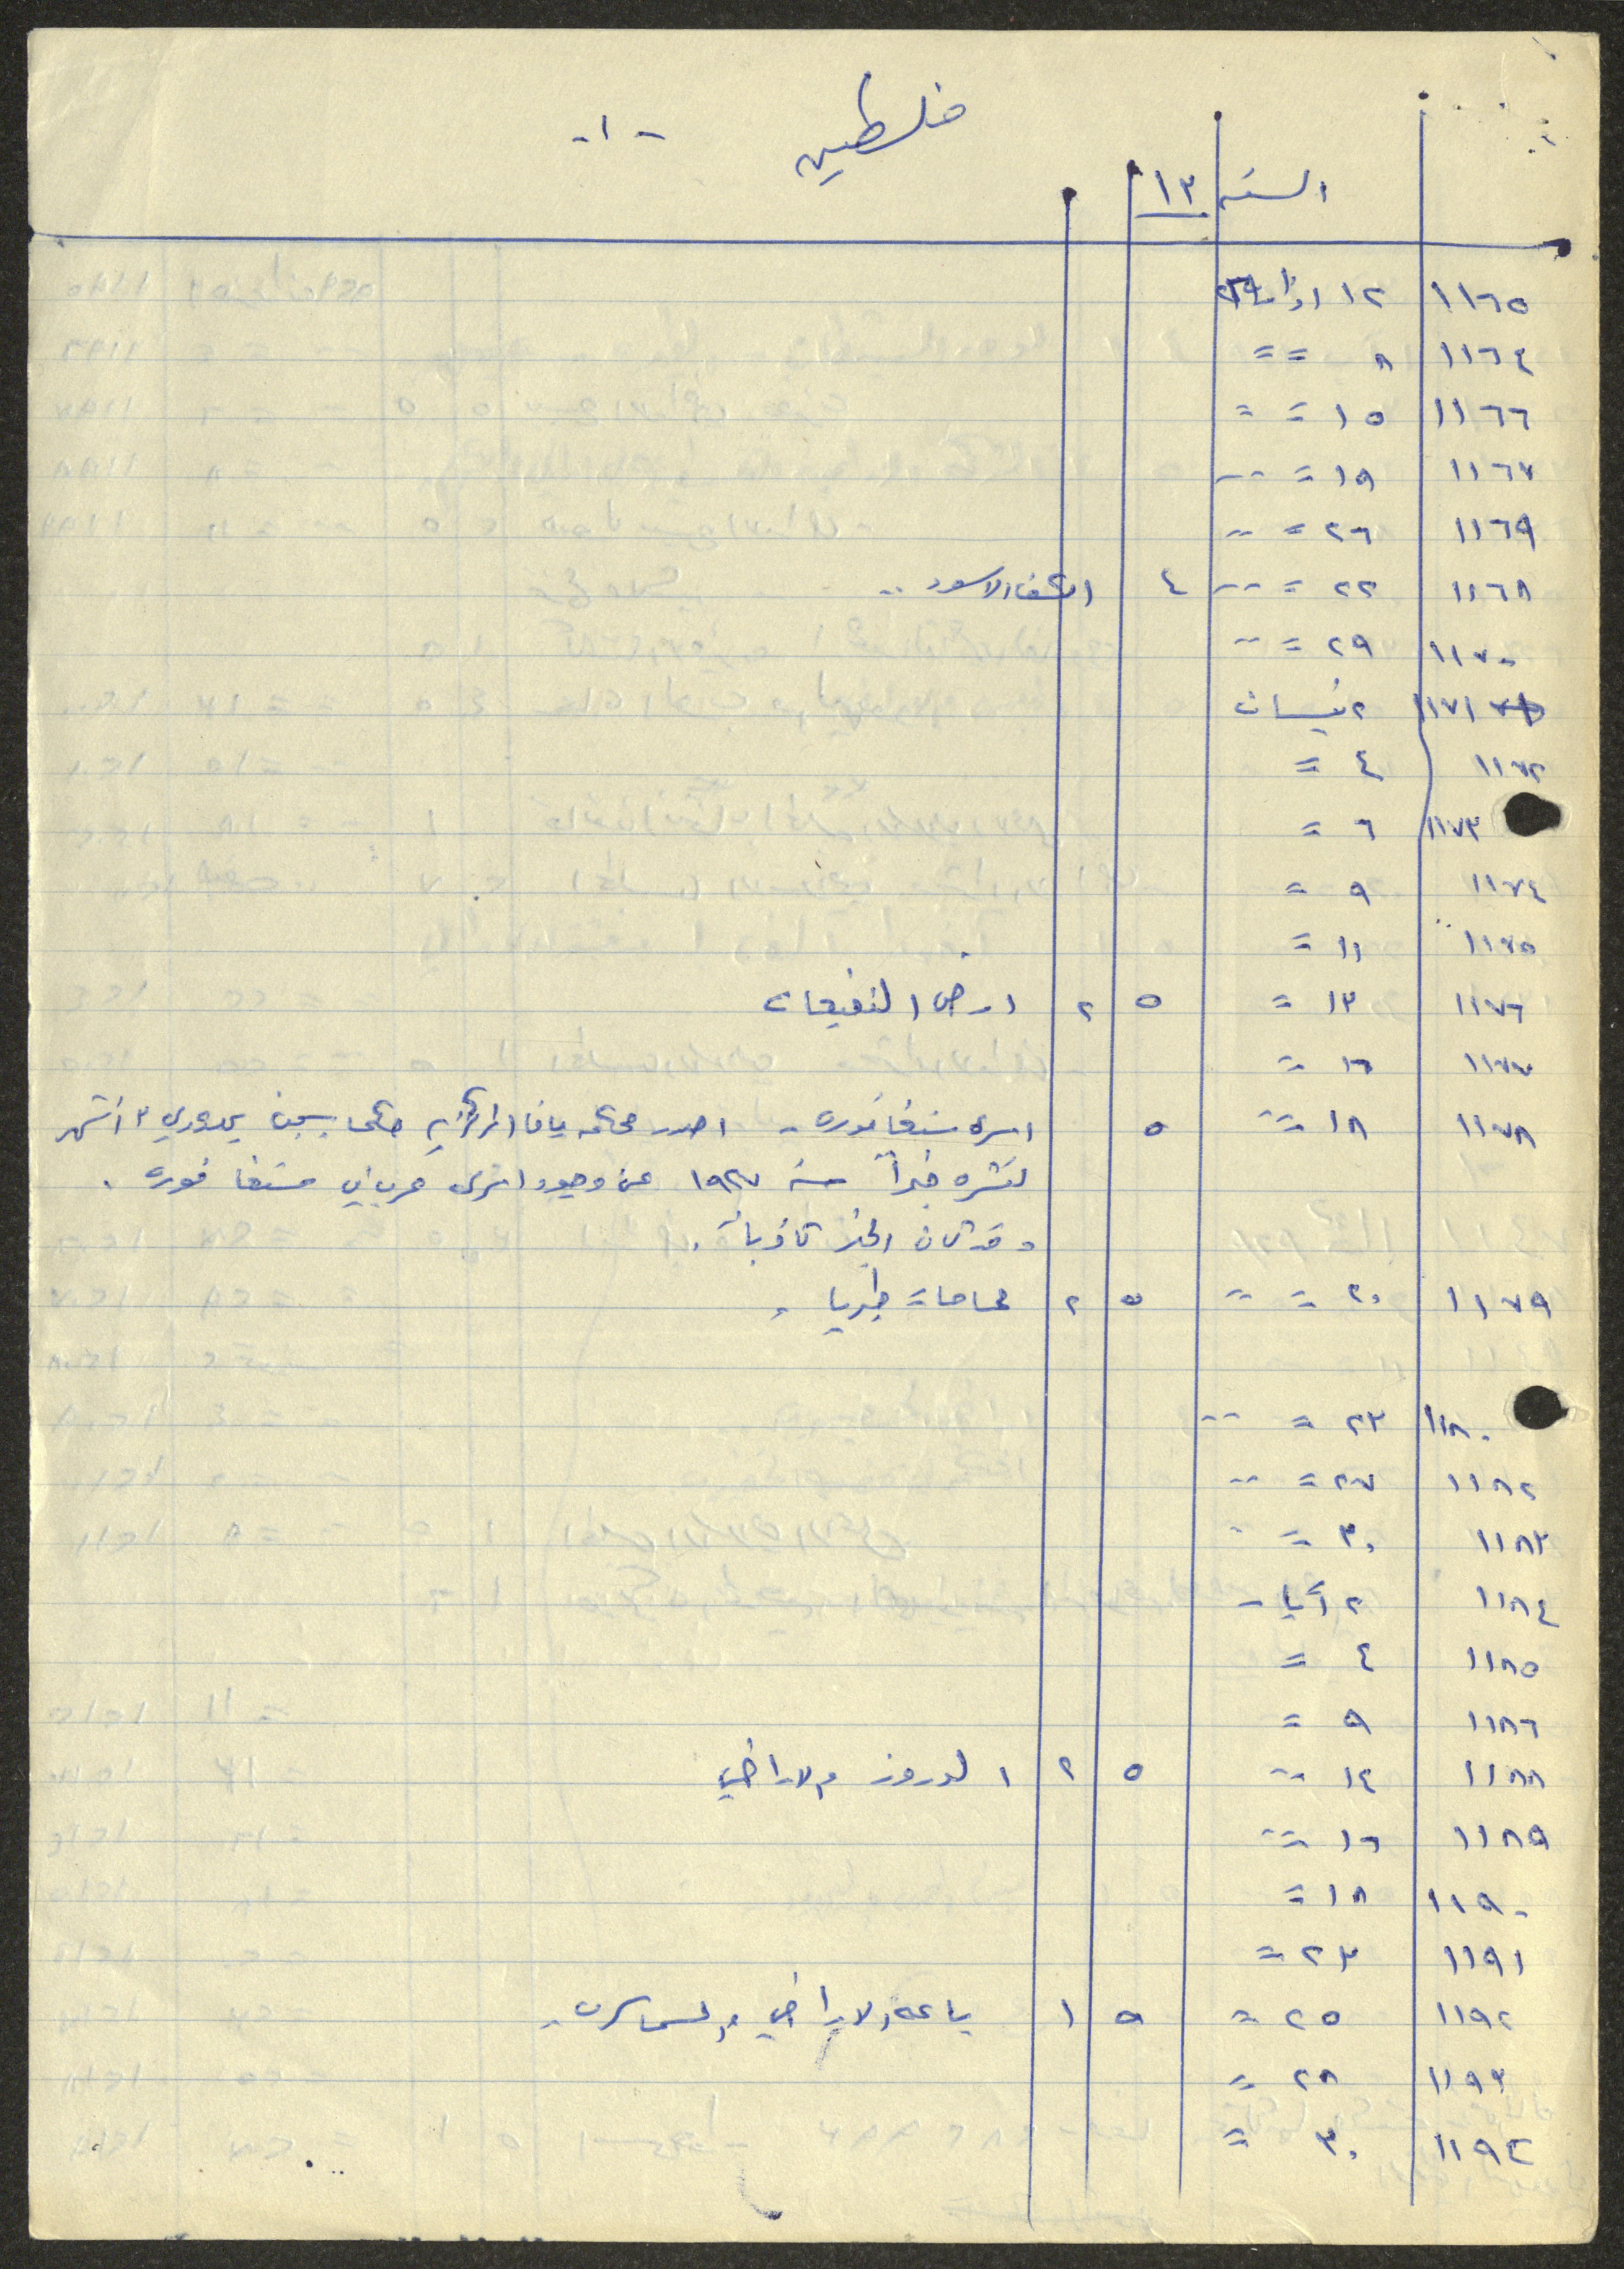 فلسطين -١-
السنة ١٣
١١٦٥ ١٢ اذار
١١٦٤ ٨ = =
١١٦٦ ١٥ = =
١١٦٧ ١٩ = =
١١٦٩ ٢٦ = =
١١٦٨ ٢٢ = = ٤ الاسود ..
١١٧٠ ٢٩ = =
١١٧١ ٢ نيسان
١١٧٢ ٤ =
١١٧٣ ٦ =
١١٧٤ ٩ =
١١٧٥ ١١ =
١١٧٦ ١٣ = ٥ ٢ ارض النفيعات
١١٧٧ ١٦ =
١١٧٨ ١٨ = ٥ اسرى سنغافوره - اصدر محكمه يافا المركزيه حكما بسجن يحدوري ٣ اشهر
لنشره خبراً سنة ١٩٢٧ عن وجود اسرى عرب في سنغافوره .
وقد كان الخبر كاذباً .
١١٧٩ ٢٠ = = ٥ ٢ محاماة طبريا .
١١٨٠ ٢٣ = =
١١٨٢ ٢٧ = =
١١٨٣ ٣٠ = =
١١٨٤ ٢ أيار
١١٨٥ ٤ =
١١٨٦ ٩ =
١١٨٨ ١٤ = ٥ ٢ الدروز والاراضي
١١٨٩ ١٦ =
١١٩٠ ١٨ =
١١٩١ ٢٣ =
١١٩٢ ٢٥ = ٥ ١ باعه الاراضي والسماسره .
١١٩٣ ٢٨ =
١١٩٤ ٣٠ =